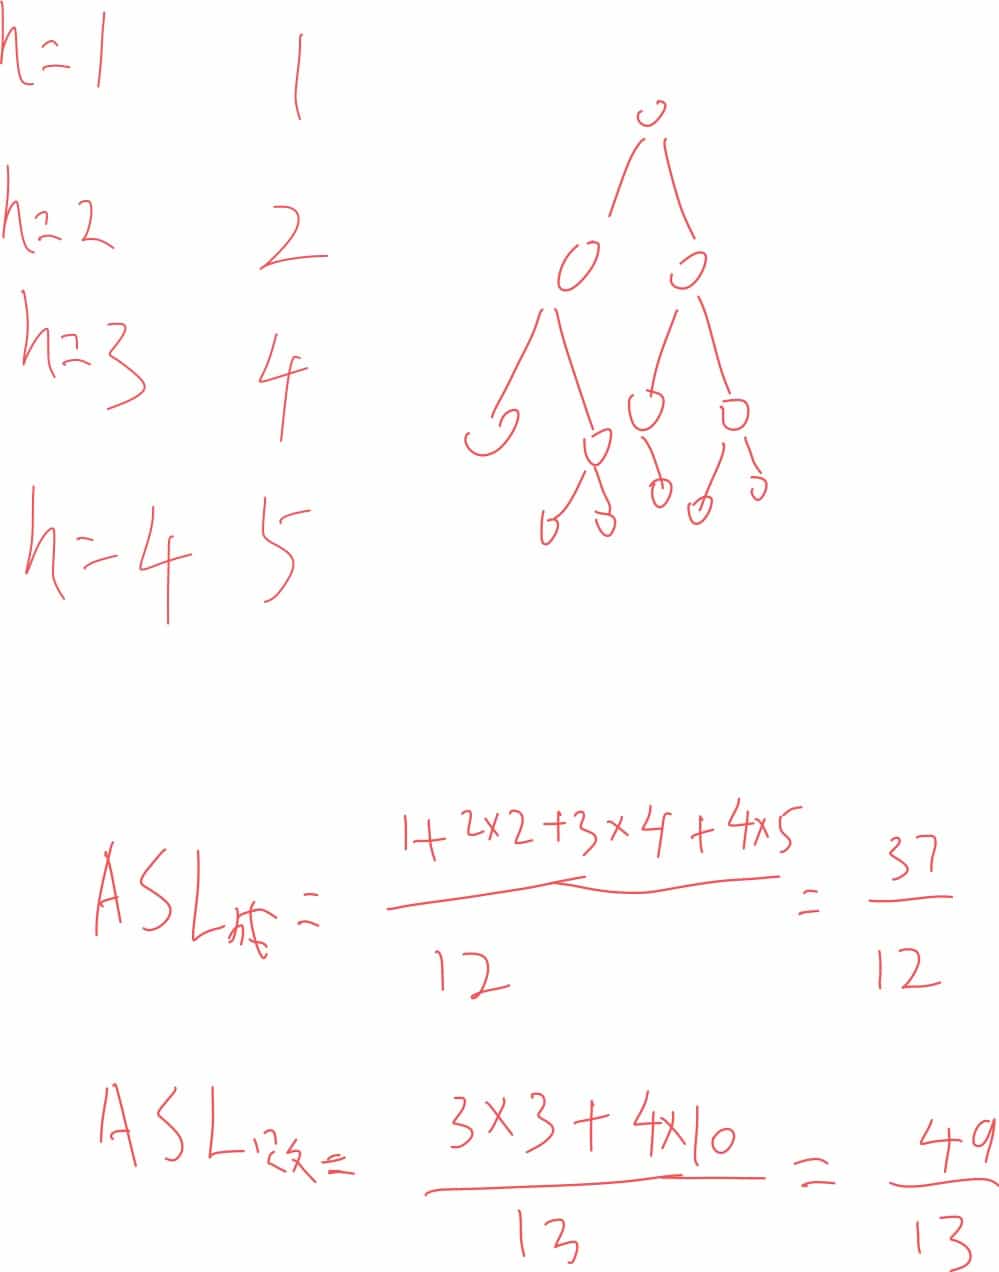 h=1 1
h=2 2
h=3 4
h=4 5
ASL成 = (1+2×2+3×4+4×5)/12 = 37/12
ASL没 = (3×3+4×10)/13 = 49/13